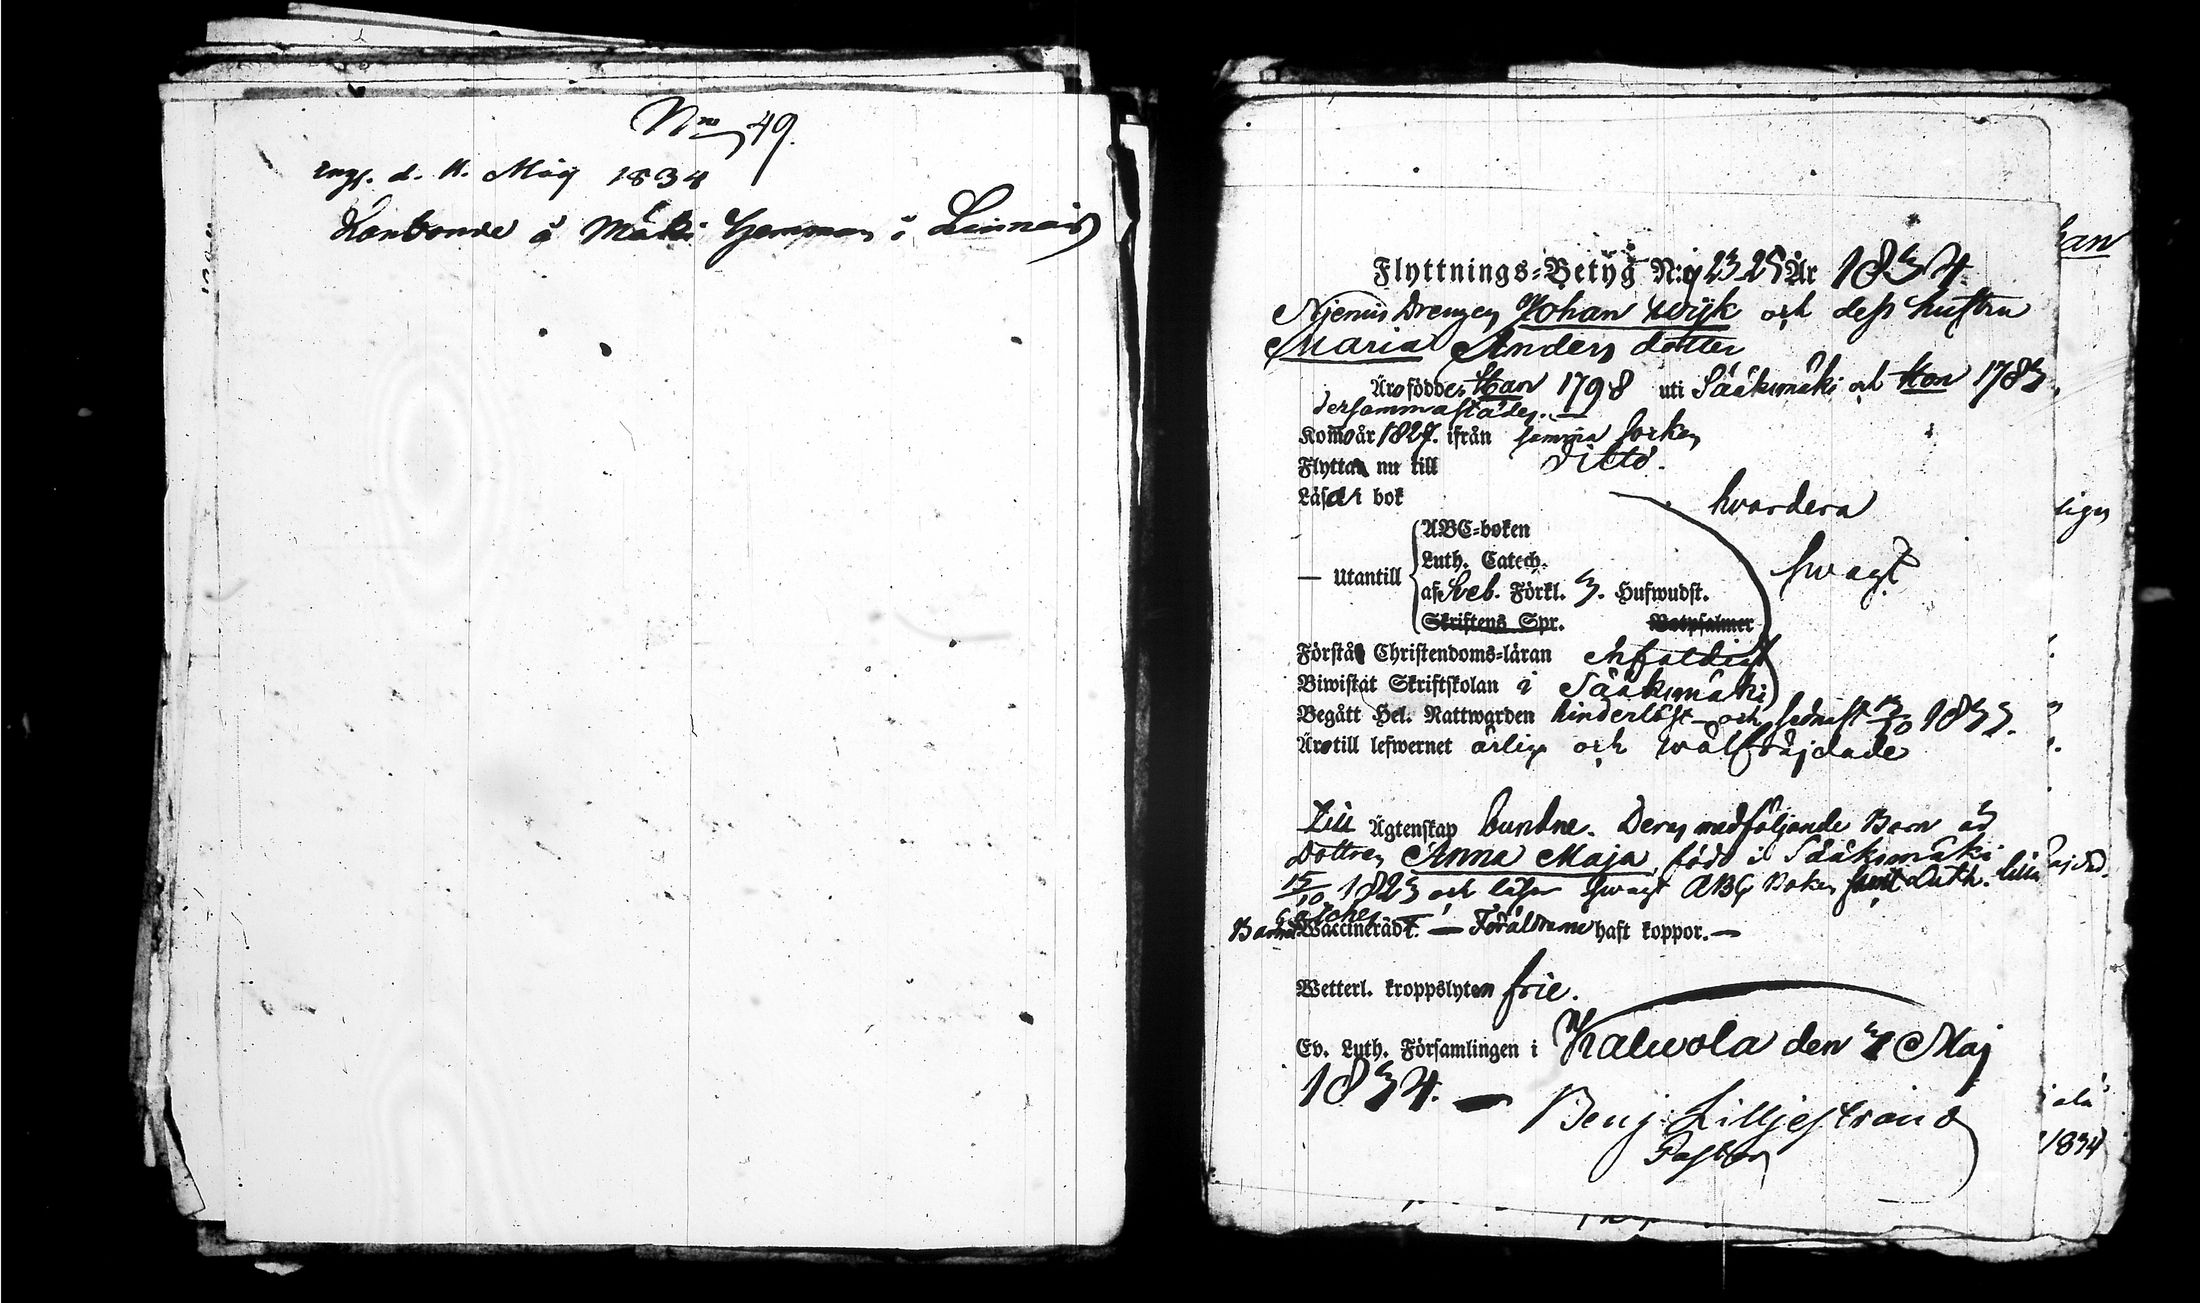 Nro 49.
d. 11. Maij 1834
Lanbonde å Mäki Hemman i
Flyttnings-Betyg N:o 23 25 År 1834.
Drengen Johan Wijk och dess hustru
Maria Anders dotter
Äro födde Han 1798 uti Sääksmäki och Hon 1783
dersammastädes. —
Komo år 1827. ifrån samma Socken
Flytta nu till Ditto.
Läsa i bok hvardera
ABC-boken
Luth. Catech.
— Utantill svagt
af Sveb. Förkl. 3. Hufwudst.
Skriftens Spr. Botpsalmer
Förstå Christendoms-läran enfaldigt
Biwistat Skriftskolan i Sääksmäki
Begått Hel. Nattwarden hinderlöst och sednast 13/10 1833.
Äro till lefwernet ärlige och wälfräjdade
Till Ägtenskap bundne. Deras medföljande Barn är
Dottren Anna Maja född i Sääksmäki
15/10 1823 och läser swagt ABC Boken samt Luth. lilla
Catches
Barnet Waccineradt. — Föräldrarne haft koppor. —
Wetterl. kroppslyten frie.
Ev. Luth. Församlingen i Kalwola den Maj
1834. —
Benj. Lilljestrand
Pastor
1834